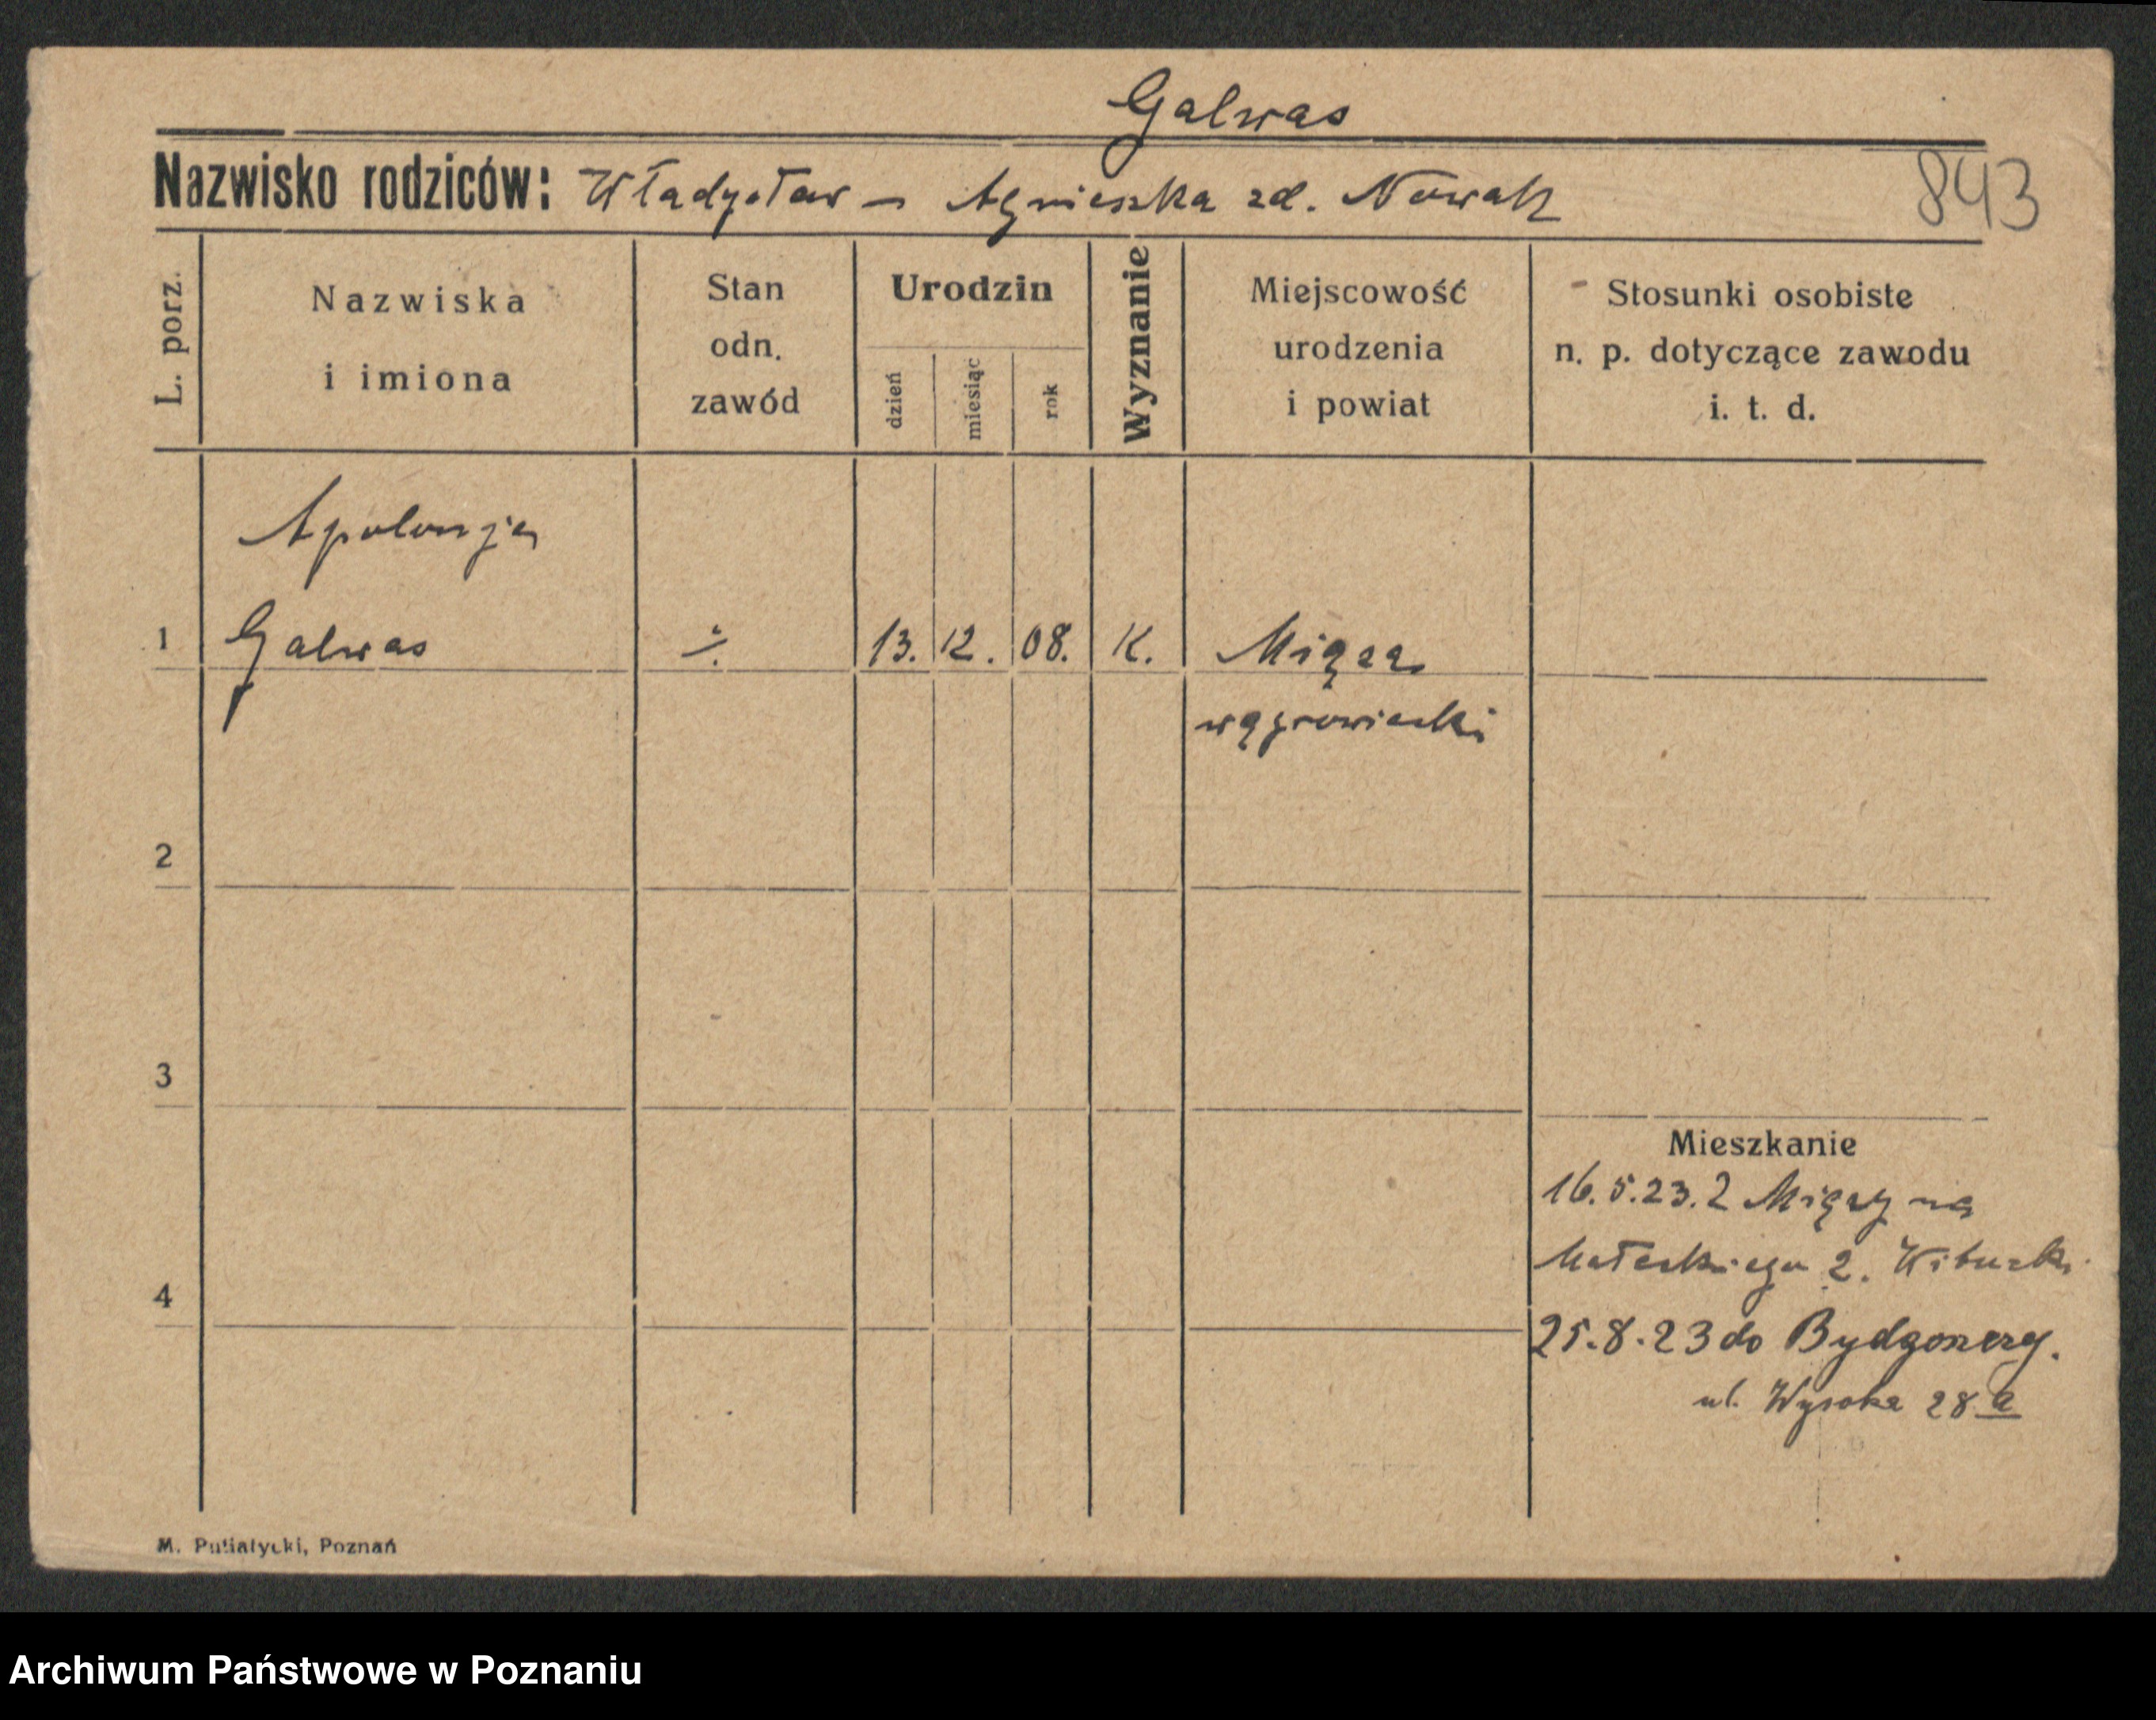 Galwas
Nazwisko rodziców: Władysław – Agnieszka zd. Nowak
843
L. porz.
Nazwiska
i imiona
Stan
odn.
zawód
Urodzin
dzień
miesiąc
rok
Wyznanie
Miejscowość
urodzenia
i powiat
Stosunki osobiste
n. p. dotyczące zawodu
i. t. d.
Apolonja
1 Galwas ·/. 13. 12. 08. K. Miąza
wągrowiecki
2
3
Mieszkanie
16.5.23. z Miązy na
Małeckiego 2.
4
25.8.23 do Bydgoszczy.
ul. Wysoka 28 a
M. Putiatycki, Poznań
Archiwum Państwowe w Poznaniu